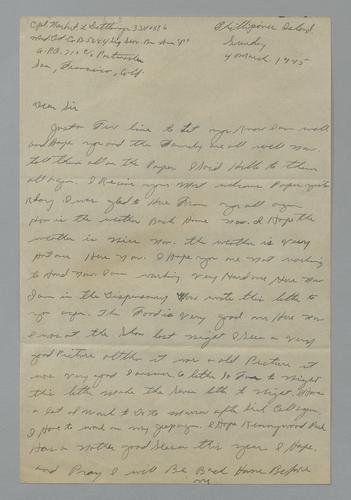 Cpl. Herbert L
Med Det Co B
A.P.O. 710 c/o Postmaster
San, Francisco, Calif.
Phillipines Island
Sunday
4 March 1945
Dear Sir
Just a Few line to let you Know I am well
and Hope you and the Family are all well now.
tell them all on the Paper I Said Hello to them
all again. I Recive your Most welcome Paper
today I was glad to Here From you all again
How is the weather Back Home now. I Hope the
weather is nice now. the weather is very
Hot over Here now. I Hope you are not working
to Hard now. I am working very Hard over Here now
I am in the Dispensary now wrote this letter to
you again. the Food is very good over Here now
I was at the Show last night I Seen a very
good Picture altho it was a old Picture it
was very good I answer 6 letter So Far to night
this letter make the Seven letter to night. I Have
a lot of work to do to morrow after Sick Call again.
I Have to work on my again. I Hope Kennywood Park
Has a nother good Season this year I Hope.
and Pray I will Be Back Home Before